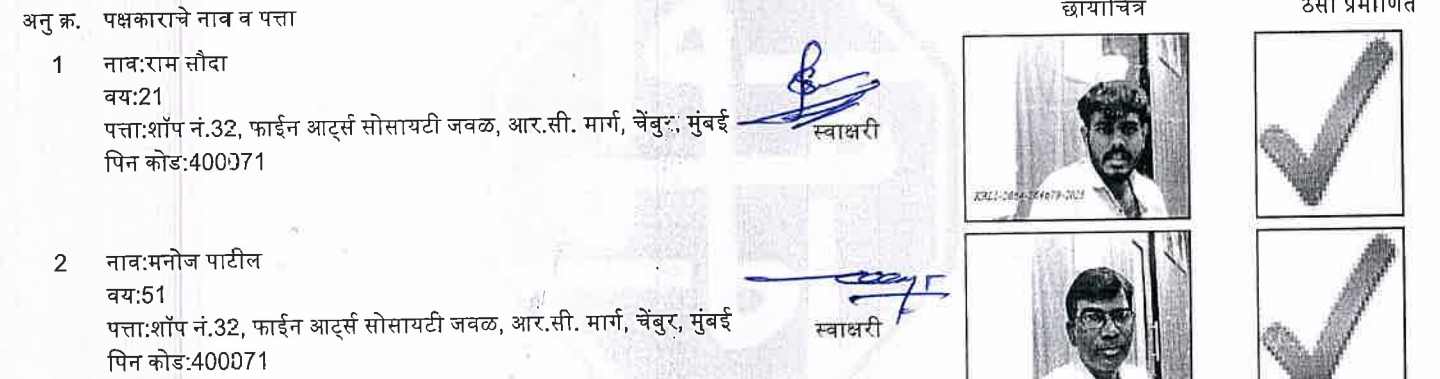 अनु क्र. पक्षकाराचे नाव व पत्ता छायाचित्र ठसा प्रमाणित
1 नाव:राम सौदा
वय:21
पत्ता:शॉप नं.32, फाईन आर्ट्स सोसायटी जवळ, आर.सी. मार्ग, चेंबुर, मुंबई
स्वाक्षरी
पिन कोड:400071
2 नाव:मनोज पाटील
वय:51
पत्ता:शॉप नं.32, फाईन आर्ट्स सोसायटी जवळ, आर.सी. मार्ग, चेंबुर, मुंबई
स्वाक्षरी
पिन कोड:400071